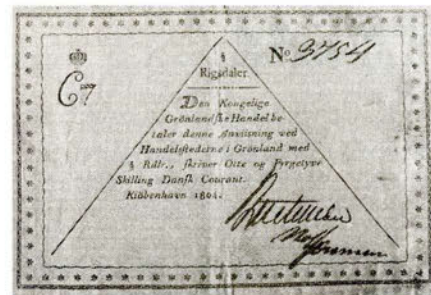 No 3754
C7
Rigsdaler.
Den Kongelige
Grönlandske Handel be-
taler denne Anviisning ved
Handelstederne i Grönland med
Rdlr., skriver Otte og Fyrgetyve
Skilling Dansk Courant.
Kiöbenhavn 1804.